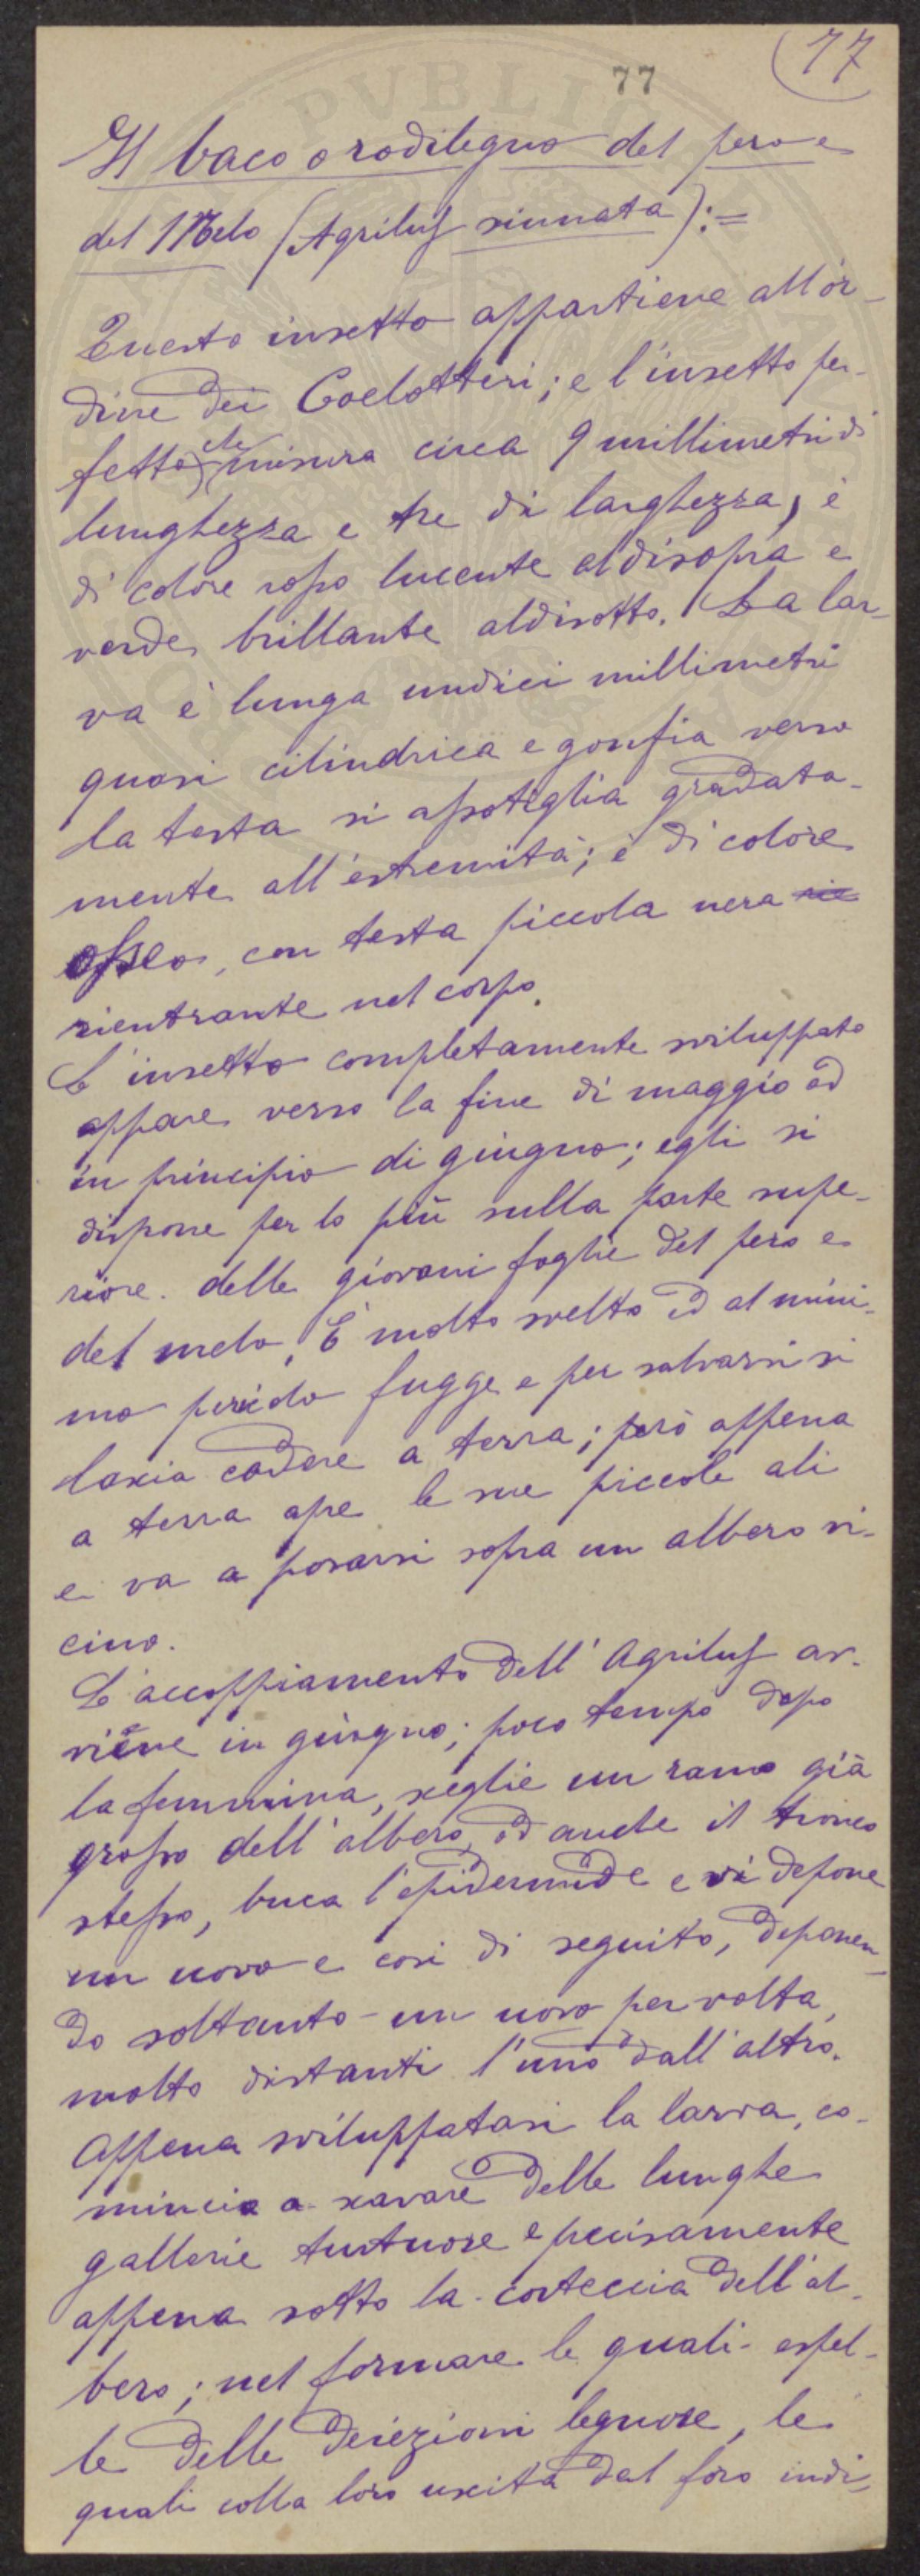 77
17
Il baco o rodilegno del pero e
del Melo (Agrilus sinuata):=
Questo insetto appartiene all'or-
dine dei Coelotteri; e l'insetto per-
fetto che misura circa 9 millimetri di
lunghezza e tre di larghezza, è
di colore rosso lucente aldisopra e
verde brillante aldisotto. La lar-
va è lunga undici millimetri
quasi cilindrica e gonfia verso
la testa si assotiglia gradata-
mente all'estremità; è di colore
osseo, con testa piccola nera
rientrante nel corpo.
L'insetto completamente sviluppato
appare verso la fine di maggio od
in principio di giugno; egli si
dispone per lo più sulla parte supe-
riore delle giovani foglie del pero e
del melo. È molto svelto ed al mini-
mo pericolo fugge e per salvarsi si
lascia cadere a terra; però appena
a terra apre le sue piccole ali
e va a posarsi sopra un albero vi-
cino.
L'accoppiamento dell'Agrilus av-
viene in giugno; poco tempo dopo
la femmina, sceglie un ramo già
grosso dell'albero, od anche il tronco
stesso, buca l'epidermide e vi depone
un uovo e così di seguito, deponen-
do soltanto un uovo per volta,
molto distanti l'uno dall'altro.
Appena sviluppatasi la larva, co-
mincia a scavare delle lunghe
gallerie tortuose e precisamente
appena sotto la corteccia dell'al-
bero; nel formare le quali espel-
le delle deiezioni legnose, le
quali colla loro uscita dal foro indi-